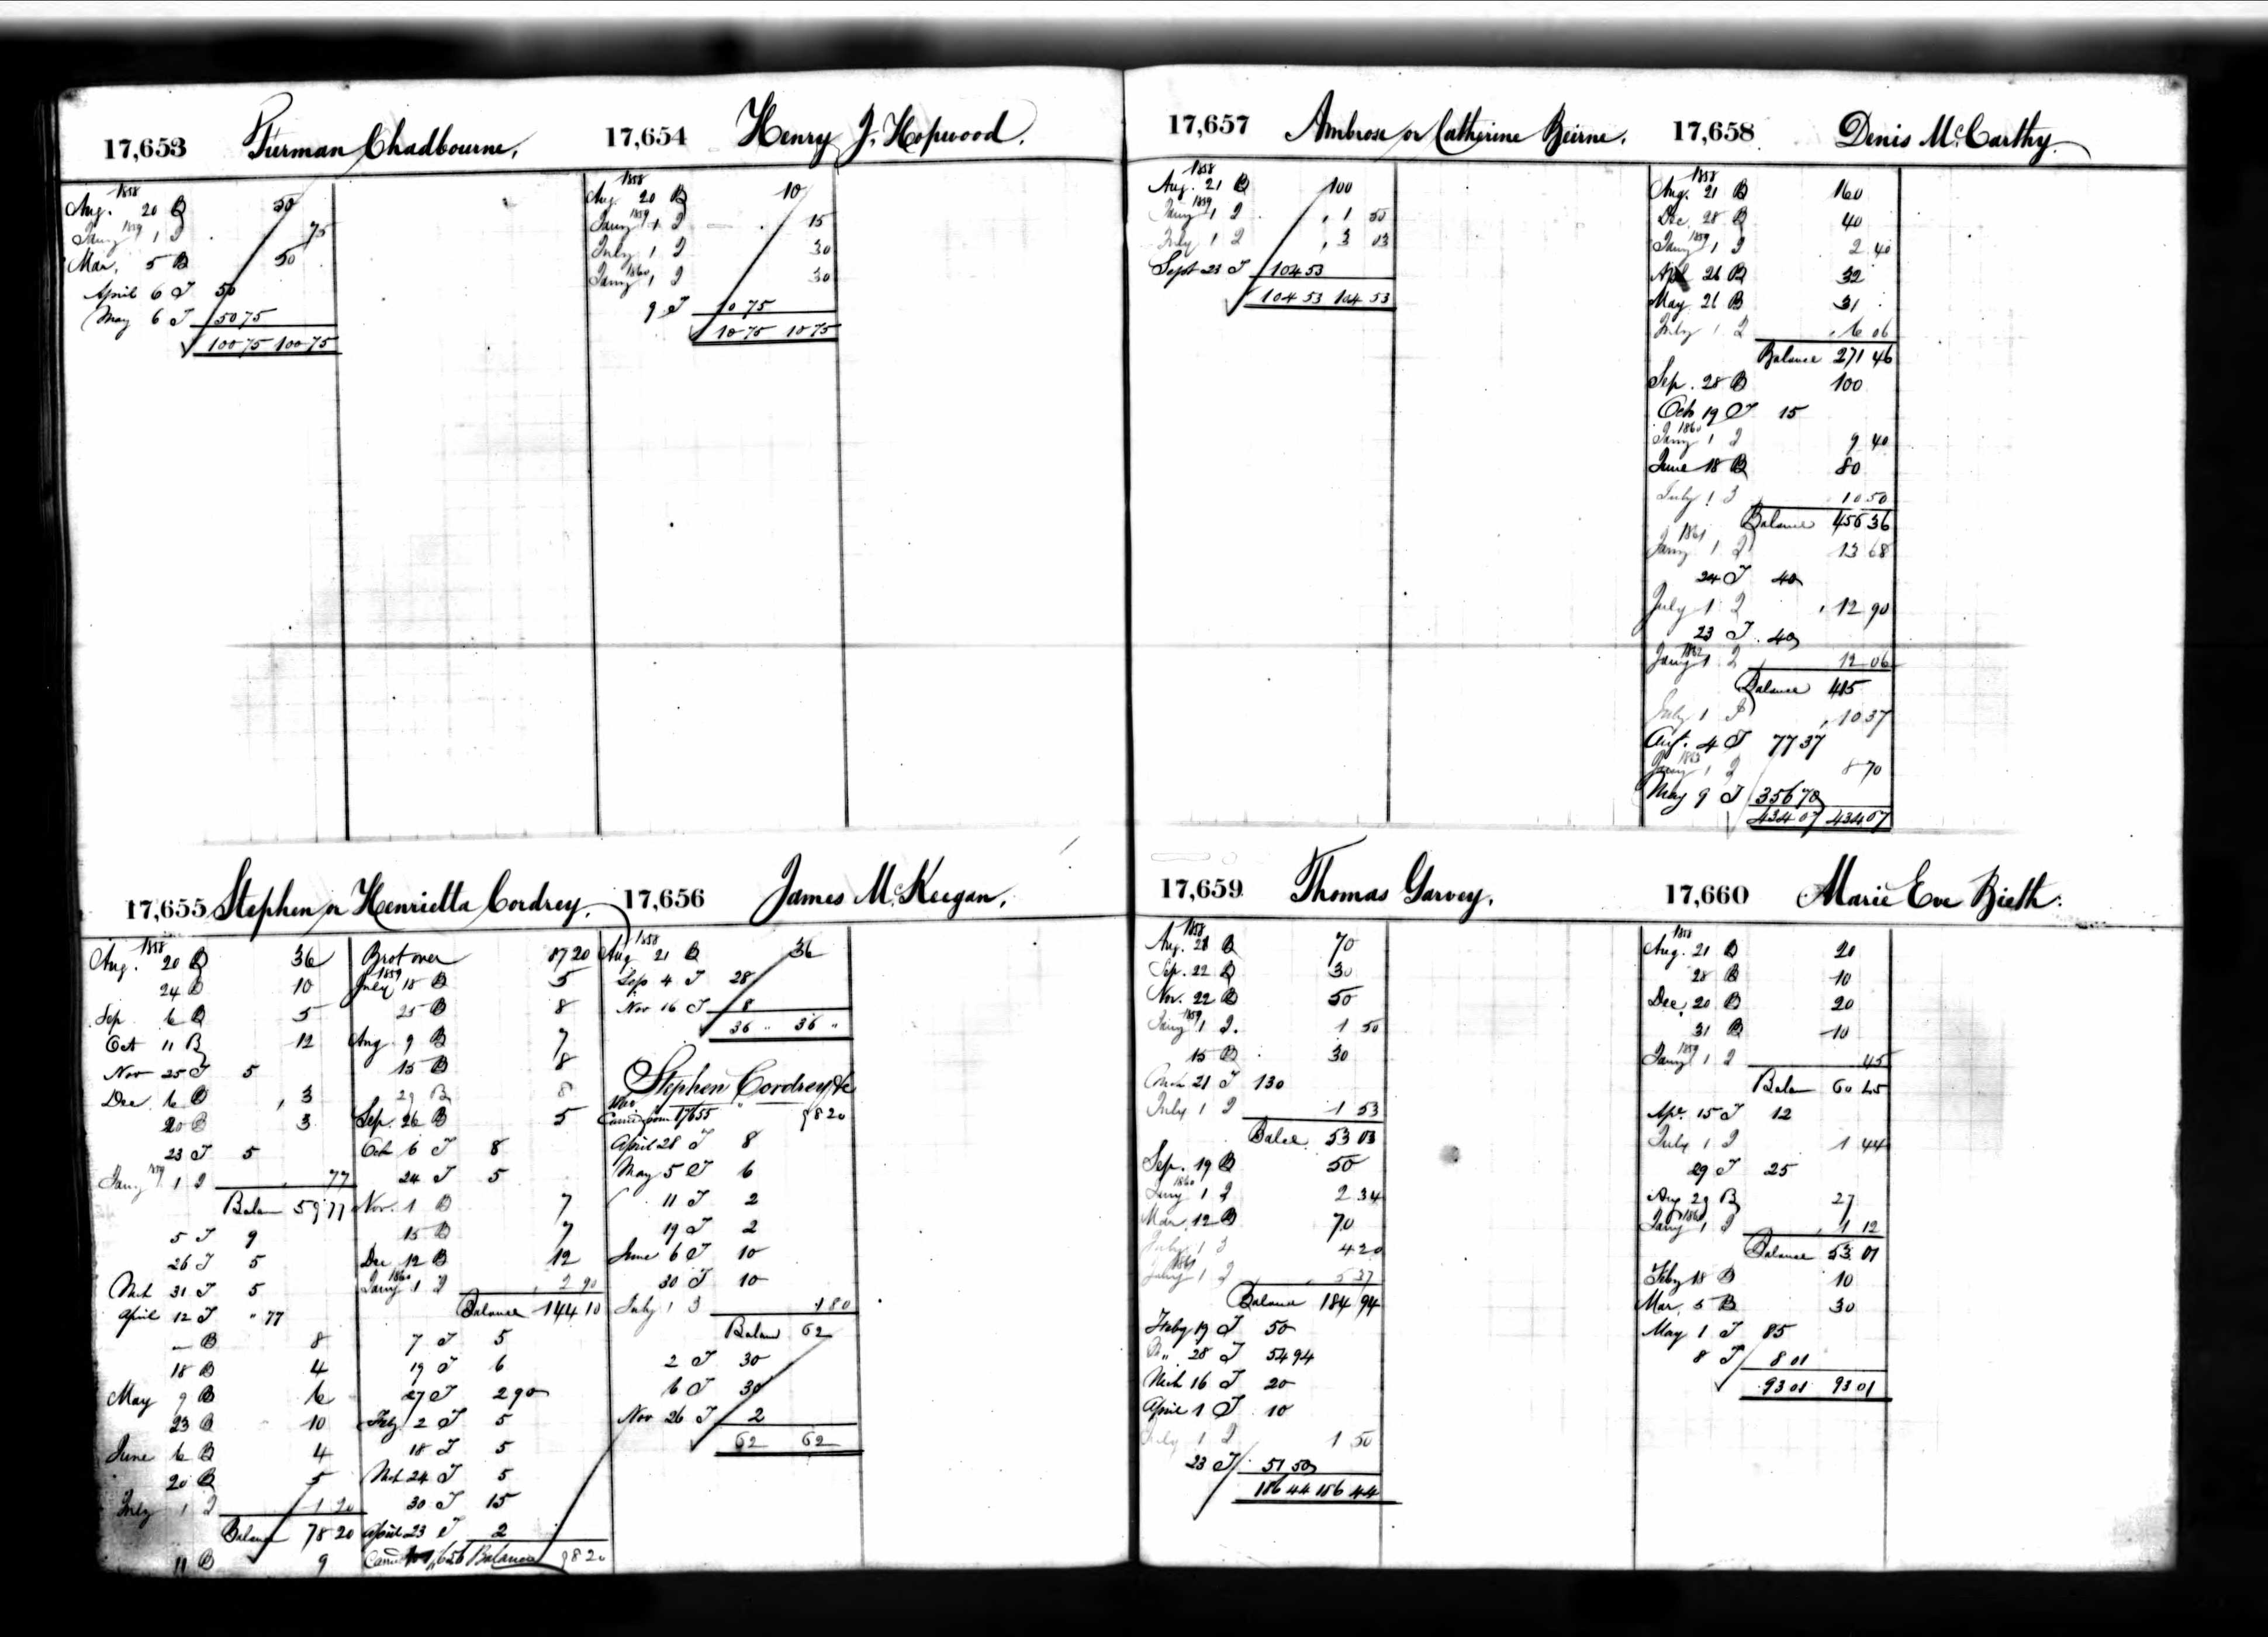 17,653 Furman Chadbourne.
1858
Aug. 20 B 50
Jany 1859 1 I 75
Mar. 5 B 50
April 6 T 50
May 6 T 50 75
100 75 100 75
17,654 Henry J. Hopwood.
1858
Aug. 20 B 10
Jany 1859 1 I 15
July 1 I 30
Jany 1860 1 I 30
9 T 10 75
10 75 10 75
17,655 Stephen or Henrietta Cordrey.
1858
Aug. 20 B 36
24 B 10
Sep 6 B 5
Oct 11 B 12
Nov 25 T 5
Dec. 6 B 3
20 B 3
23 T 5
Jany 1859 1 I 77
Balan 59 77
5 T 9
26 T 5
Mch 31 T 5
April 12 T " 77
— B 8
18 B 4
May 9 B 6
23 B 10
June 6 B 4
20 B 5
July 1 I 1 20
Balance 78 20
11 B 9
Brot over 87 20
1859
July 18 B 5
25 B 8
Aug. 9 B 7
15 B 8
29 B 8
Sep. 26 B 5
Oct 6 T 8
24 T 5
Nov. 1 B 7
15 B 7
Dec 12 B 12
Jany 1860 1 I 2 90
Balance 144 10
7 T 5
19 T 6
27 T 2 90
Feby 2 T 5
18 T 5
Mch 24 T 5
30 T 15
April 23 T 2
Balance 98 20
17,656 James McKeegan.
1858
Aug 21 B 36
Sep 4 T 28
Nov 16 T 8
36 " 36 "
Stephen Cordrey &c
1860
Carrd from 17655 98 20
April 28 T 8
May 5 T 6
11 T 2
19 T 2
June 6 T 10
30 T 10
July 1 I 1 80
Balan 62
2 T 30
6 T 30
Nov 26 T 2
62 62
17,657 Ambrose or Catherine Beirne.
1858
Aug. 21 B 100
Jany 1859 1 I 1 50
July 1 I 3 03
Sept 23 T 104 53
104 53 104 53
17,658 Denis McCarthy.
1858
Aug. 21 B 160
Dec. 28 B 40
Jany 1859 1 I 2 40
Apl 26 B 32
May 21 B 31
July 1 I 6 06
Balance 271 46
Sep. 28 B 100
Oct 19 T 15
Jany 1860 1 I 9 40
June 18 B 80
July 1 I 10 50
Balance 456 36
Jany 1861 1 I 13 68
24 T 40
July 1 I 12 90
23 T 40
Jany 1862 1 I 12 06
Balance 415
July 1 I 10 37
Aug. 4 T 77 37
Jany 1863 1 I 8 70
May 9 T 356 70
434 07 434 07
17,659 Thomas Garvey.
1858
Aug. 21 B 70
Sep. 22 B 30
Nov. 22 B 50
Jany 1859 1 I. 1 50
15 B 30
Mch 21 T 130
July 1 I 1 53
Balce 53 03
Sep. 19 B 50
Jany 1860 1 I 2 34
Mar. 12 B 70
July 1 I 4 20
Jany 1861 1 I 5 37
Balance 184 94
Feby 19 T 50
" 28 T 54 94
Mch 16 T 20
April 1 T 10
July 1 I 1 50
23 T 51 50
186 44 186 44
17,660 Marie Eve Bieth.
1858
Aug. 21 B 20
28 B 10
Dec. 20 B 20
31 B 10
Jany 1859 1 I 45
Balan 60 45
Apr. 15 T 12
July 1 I 1 44
29 T 25
Aug 29 B 27
Jany 1860 1 I 1 12
Balance 53 01
Feby 18 B 10
Mar. 5 B 30
May 1 T 85
8 T 8 01
93 01 93 01